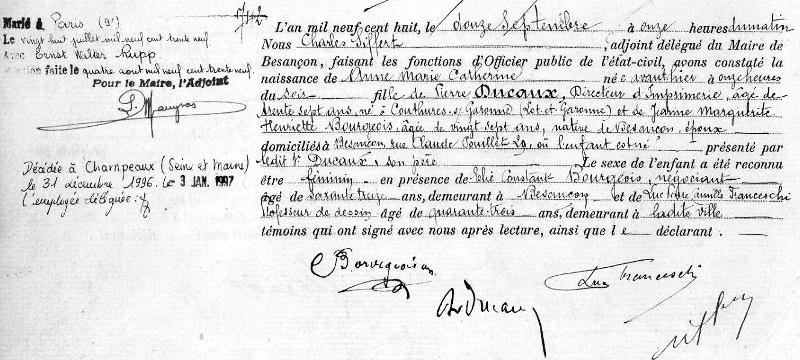 Marié à Paris (9e)
Le vingt huit juillet mil neuf cent trente neuf
avec Ernst Walter Rupp
mention faite le quatre aout mil neuf cent trente neuf
Pour le Maire, l'Adjoint
Décédée à Champeaux (Seine et Marne)
le 31 décembre 1996. le 3 JAN. 1997
l'employée déléguée :
L'an mil neuf cent huit, le douze Septembre à onze heures du matin
Nous Charles Siffert, adjoint délégué du Maire de
Besançon, faisant les fonctions d'Officier public de l'état-civil, avons constaté la
naissance de Anne Marie Catherine née avant hier à onze heures
du soir fille de Pierre Ducaux, Directeur d'Imprimerie, âgé de
trente sept ans, né à Couthures s. Garonne (Lot et Garonne) et de Jeanne Marguerite
Henriette Bourgeois, âgée de vingt sept ans, native de Besançon, époux
domiciliés à Besançon, rue Claude Pouillet 29, où l'enfant est né présenté par
ledit Sr Ducaux, son père Le sexe de l'enfant a été reconnu
être féminin en présence de Elié Constant Bourgeois, négociant
âgé de soixante treize ans, demeurant à Besançon et de Luc Pierre Camille Franceschi
Professeur de dessin âgé de quarante-trois ans, demeurant à ladite ville
témoins qui ont signé avec nous après lecture, ainsi que le déclarant.
Bourgeois
Luc Franceschi
Ducaux